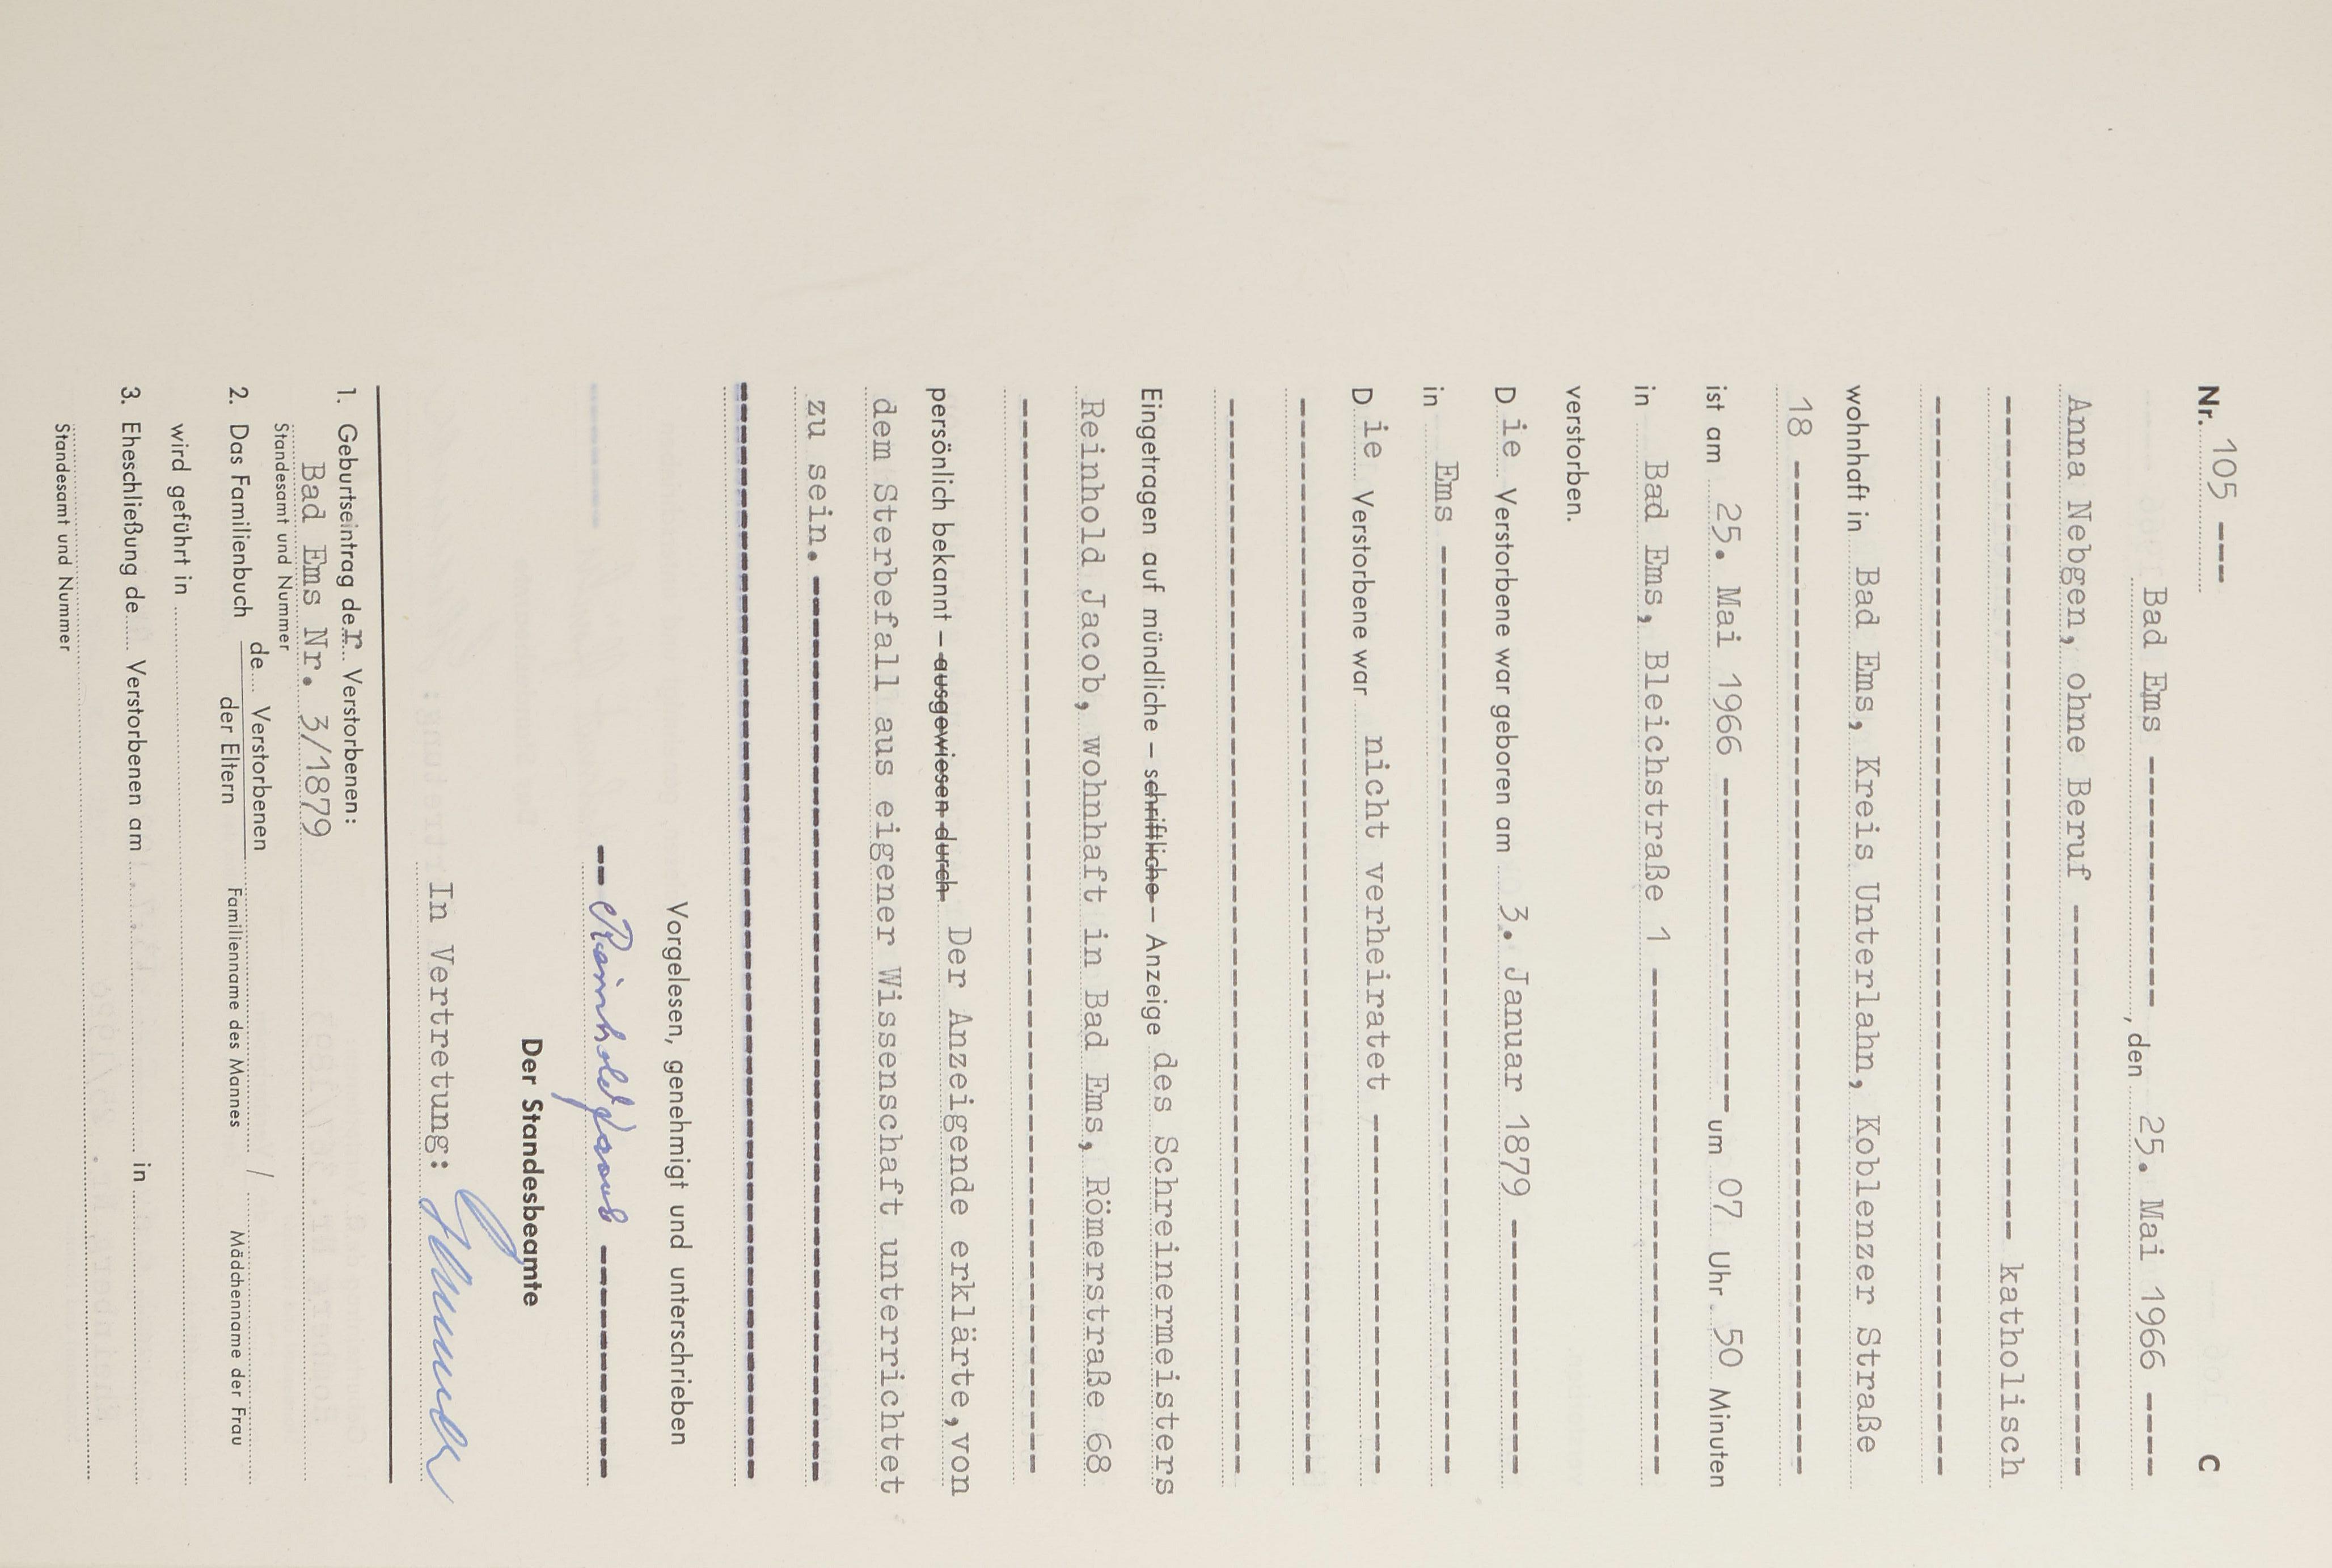 Nr. 105 --- C
Bad Ems ----------, den 25. Mai 1966 ----
Anna Nebgen, ohne Beruf ----------------------
---------------------------------- katholisch
wohnhaft in Bad Ems, Kreis Unterlahn, Koblenzer Straße
18 ------------------------------------------
ist am 25. Mai 1966 -------------- um 07 Uhr 50 Minuten
in Bad Ems, Bleichstraße 1 --------------------
verstorben.
Die Verstorbene war geboren am 3. Januar 1879 ----------
in Ems --------------------------------------
Die Verstorbene war nicht verheiratet ---------------
Eingetragen auf mündliche – schriftliche – Anzeige des Schreinermeisters
Reinhold Jacob, wohnhaft in Bad Ems, Römerstraße 68
persönlich bekannt – ausgewiesen durch Der Anzeigende erklärte, von
dem Sterbefall aus eigener Wissenschaft unterrichtet
zu sein. ------------------------------------
Vorgelesen, genehmigt und unterschrieben
-- Reinhold Jacob ---------
Der Standesbeamte
In Vertretung:
1. Geburtseintrag der Verstorbenen:
Bad Ems Nr. 3/1879
Standesamt und Nummer
2. Das Familienbuch de Verstorbenen / 
der Eltern Familienname des Mannes Mädchenname der Frau
wird geführt in
3. Eheschließung de Verstorbenen am in
Standesamt und Nummer